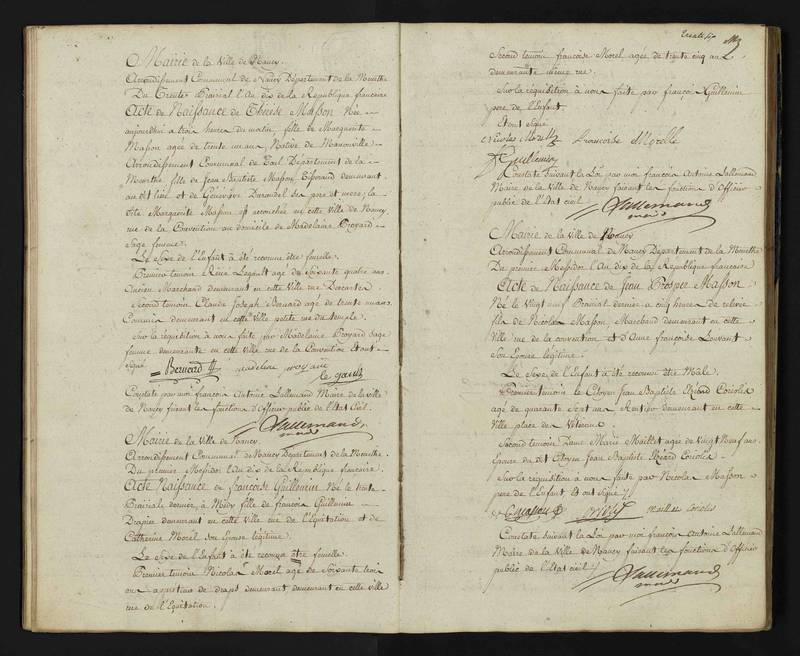 Mairie de la Ville de Nancy.
Arrondissement Communal de Nancy Département de la Meurthe
Du Trente Prairial l'An dix de la Republique francaise
Acte de Naissance de Thérèse Masson Née
aujourdhui a trois heures du matin, fille de Marguerite
Masson agée de trente un ans, Native de
Arrondissement Communal de Toul Département de la
Meurthe fille de Jean Baptiste Masson demeurant
audit lieu et de Geneviève ses pere et mere, la
dite Marguerite Masson accouchée en cette Ville de Nancy
rue de la Convention au domicile de Madelaine Proyard
Sage femme.
Le Sexe de l'Enfant à été reconnu être femelle.
Premier temoin René Legault agé de Soixante quatre ans
Ancien Marchand demeurant en cette Ville rue Descartes.
Second temoin Claude Joseph Bernard agé de trente ans
Commis demeurant en cette Ville petite rue du temple.
Sur la requisition à nous faite par Madelaine Proyard Sage
femme demeurante en cette Ville rue de la Convention Et ont
Signé
Bernard madeleine proyard
le gault
Constaté par moi françois Antoine Lallemand Maire de la Ville
de Nancy faisant les fonctions d'Officier public de l'Etat Civil.
Lallemand
maire
Mairie de la Ville de Nancy.
Arrondissement Communal de Nancy Département de la Meurthe
Du premier Messidor l'An dix de la République francaise.
Acte Naissance de francoise Guillemin Né le trente
Prairial dernier, à Midy fille de francois Guillemin
Drapier demeurant en cette Ville rue de l'Equitation et de
Catherine Morel, son Epouse légitime.
Le Sexe de l'Enfant à été reconnu être femelle.
Premier temoin Nicolas Morel agé de Soixante trois
ans de draps demeurant demeurant en cette ville
rue de l'Equitation.
Second temoin francoise Morel agée de trente cinq ans
demeurante même rue.
Sur la réquisition à nous faite par françois Guillemin
pere de l'Enfant.
Et ont Signé
Nicolas Morelle francoise Morelle
f Guillemin
Constaté Suivant la Loi par moi françois Antoine Lallemand
Maire de la Ville de Nancy faisant les fonctions d'Officier
public de l'Etat civil.
Lallemand
maire
Mairie de la Ville de Nancy
Arrondissement Communal de Nancy Département de la Meurthe
Du premier Messidor l'An dix de la République francaise
Acte de Naissance de Jean Prosper Masson.
Né le Vingt neuf Prairial dernier a cinq heures de relevée
fils de Nicolas Masson, Marchand demeurant en cette
Ville rue de la convention et d'Anne francoise Louvant
Son Epouse légitime.
Le Sexe de l'Enfant à été reconnu être Male.
Premier temoin le Citoyen Jean Baptiste Coriolis
agé de quarante Sept ans Rentier demeurant en cette
Ville place de
Second temoin Dame Marie Maillet agée de Vingt Neuf ans
Epouse du dit Citoyen Jean Baptiste Coriolis
Sur la requisition a nous faite par Nicolas Masson
pere de l'Enfant Et ont Signé
Masson maillet coriolis
Constaté Suivant la Loi par moi francois Antoine Lallemand
Maire de la Ville de Nancy faisant les fonctions d'Officier
public de l'Etat civil
Lallemand
maire